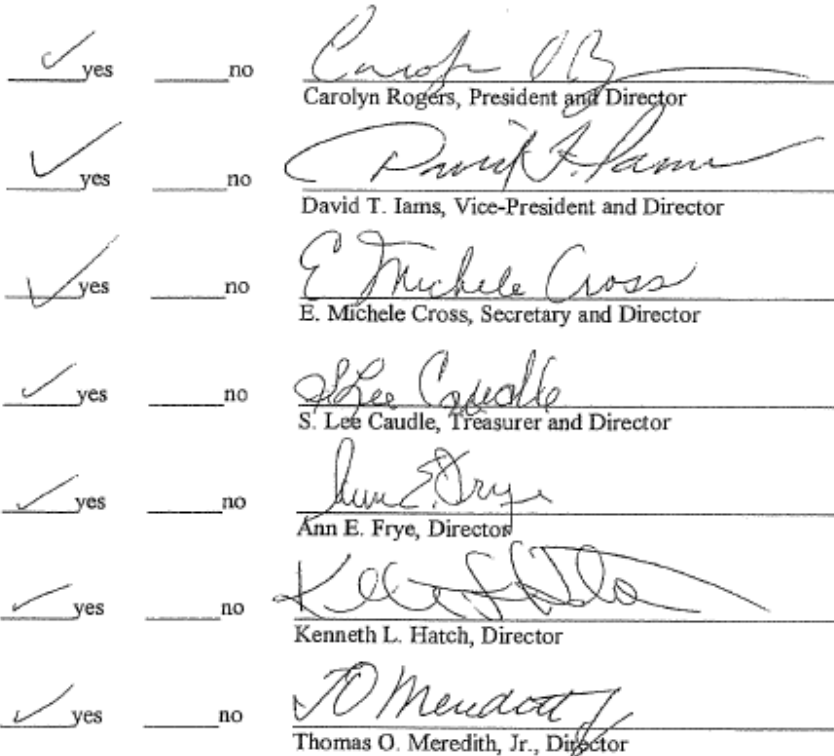 ✓ yes ____ no Carolyn
Carolyn Rogers, President and Director
✓ yes ____ no David
David T. Iams, Vice-President and Director
✓ yes ____ no E Michele Cross
E. Michele Cross, Secretary and Director
✓ yes ____ no S Lee Caudle
S. Lee Caudle, Treasurer and Director
✓ yes ____ no Ann E. Frye
Ann E. Frye, Director
✓ yes ____ no
Kenneth L. Hatch, Director
✓ yes ____ no TO Meredith Jr
Thomas O. Meredith, Jr., Director